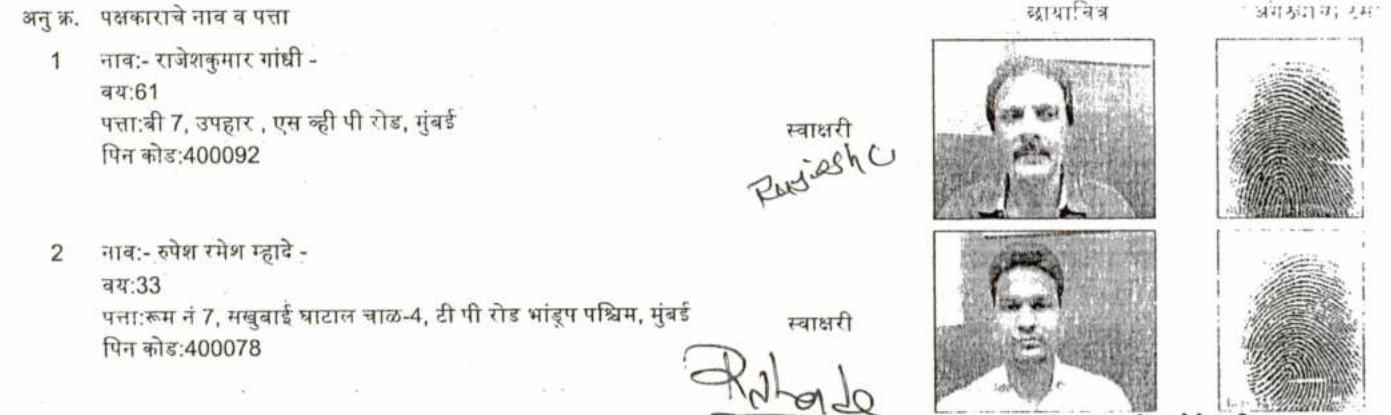 अनु क्र. पक्षकाराचे नाव व पत्ता छायाचित्र
1 नाव:- राजेशकुमार गांधी -
वय:61
पत्ता:बी 7, उपहार , एस व्ही पी रोड, मुंबई
पिन कोड:400092
स्वाक्षरी
Rajesh C
2 नाव:- रुपेश रमेश म्हादे -
वय:33
पत्ता:रूम नं 7, सखुबाई घाटाल चाळ-4, टी पी रोड भांडूप पश्चिम, मुंबई
पिन कोड:400078
स्वाक्षरी